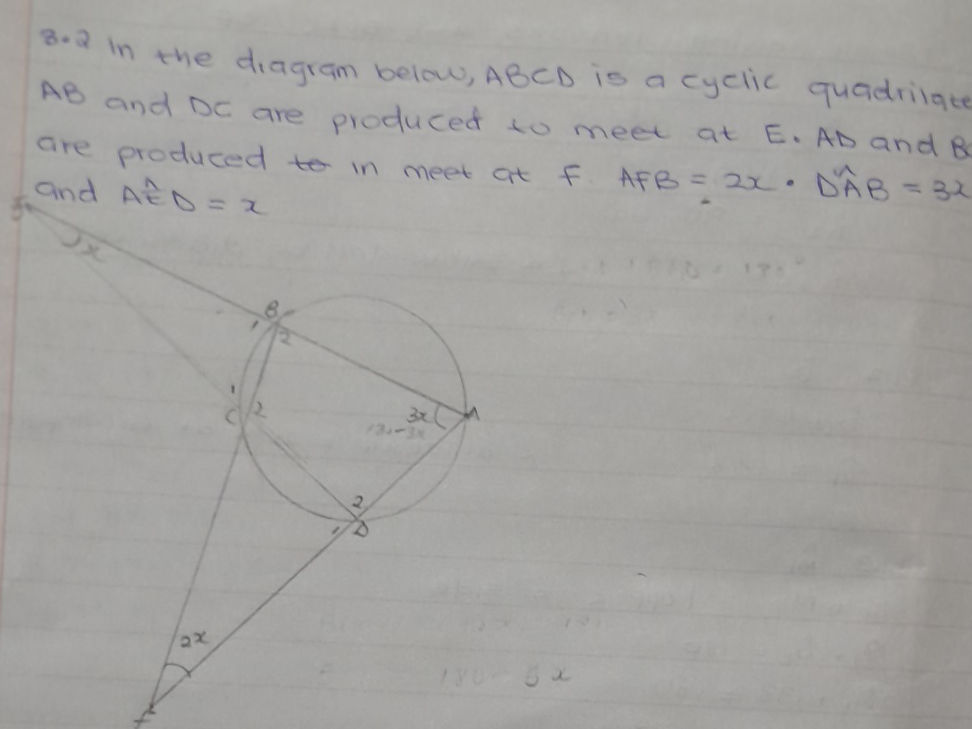 3.2 In the diagram below, ABCD is a cyclic quadrilate
AB and DC are produced to meet at E. AD and BC
are produced to in meet at F. AFB = 2x. DÂB = 3x
and AÊD = x
E
x
B
1
2
1
C 2
3x A
180-3x
2
1 D
2x
F
180 - 5x